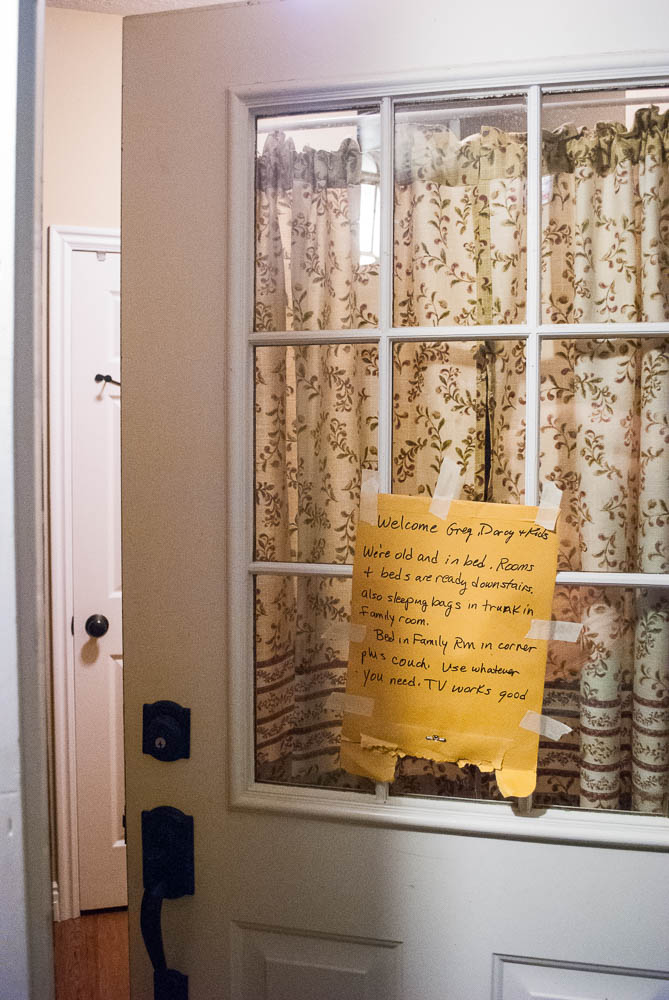 Welcome Greg, Darcy + Kids
We're old and in bed. Rooms
+ beds are ready downstairs.
also sleeping bags in trunk in
Family room.
Bed in Family Rm in corner
plus couch. Use whatever
you need. TV works good